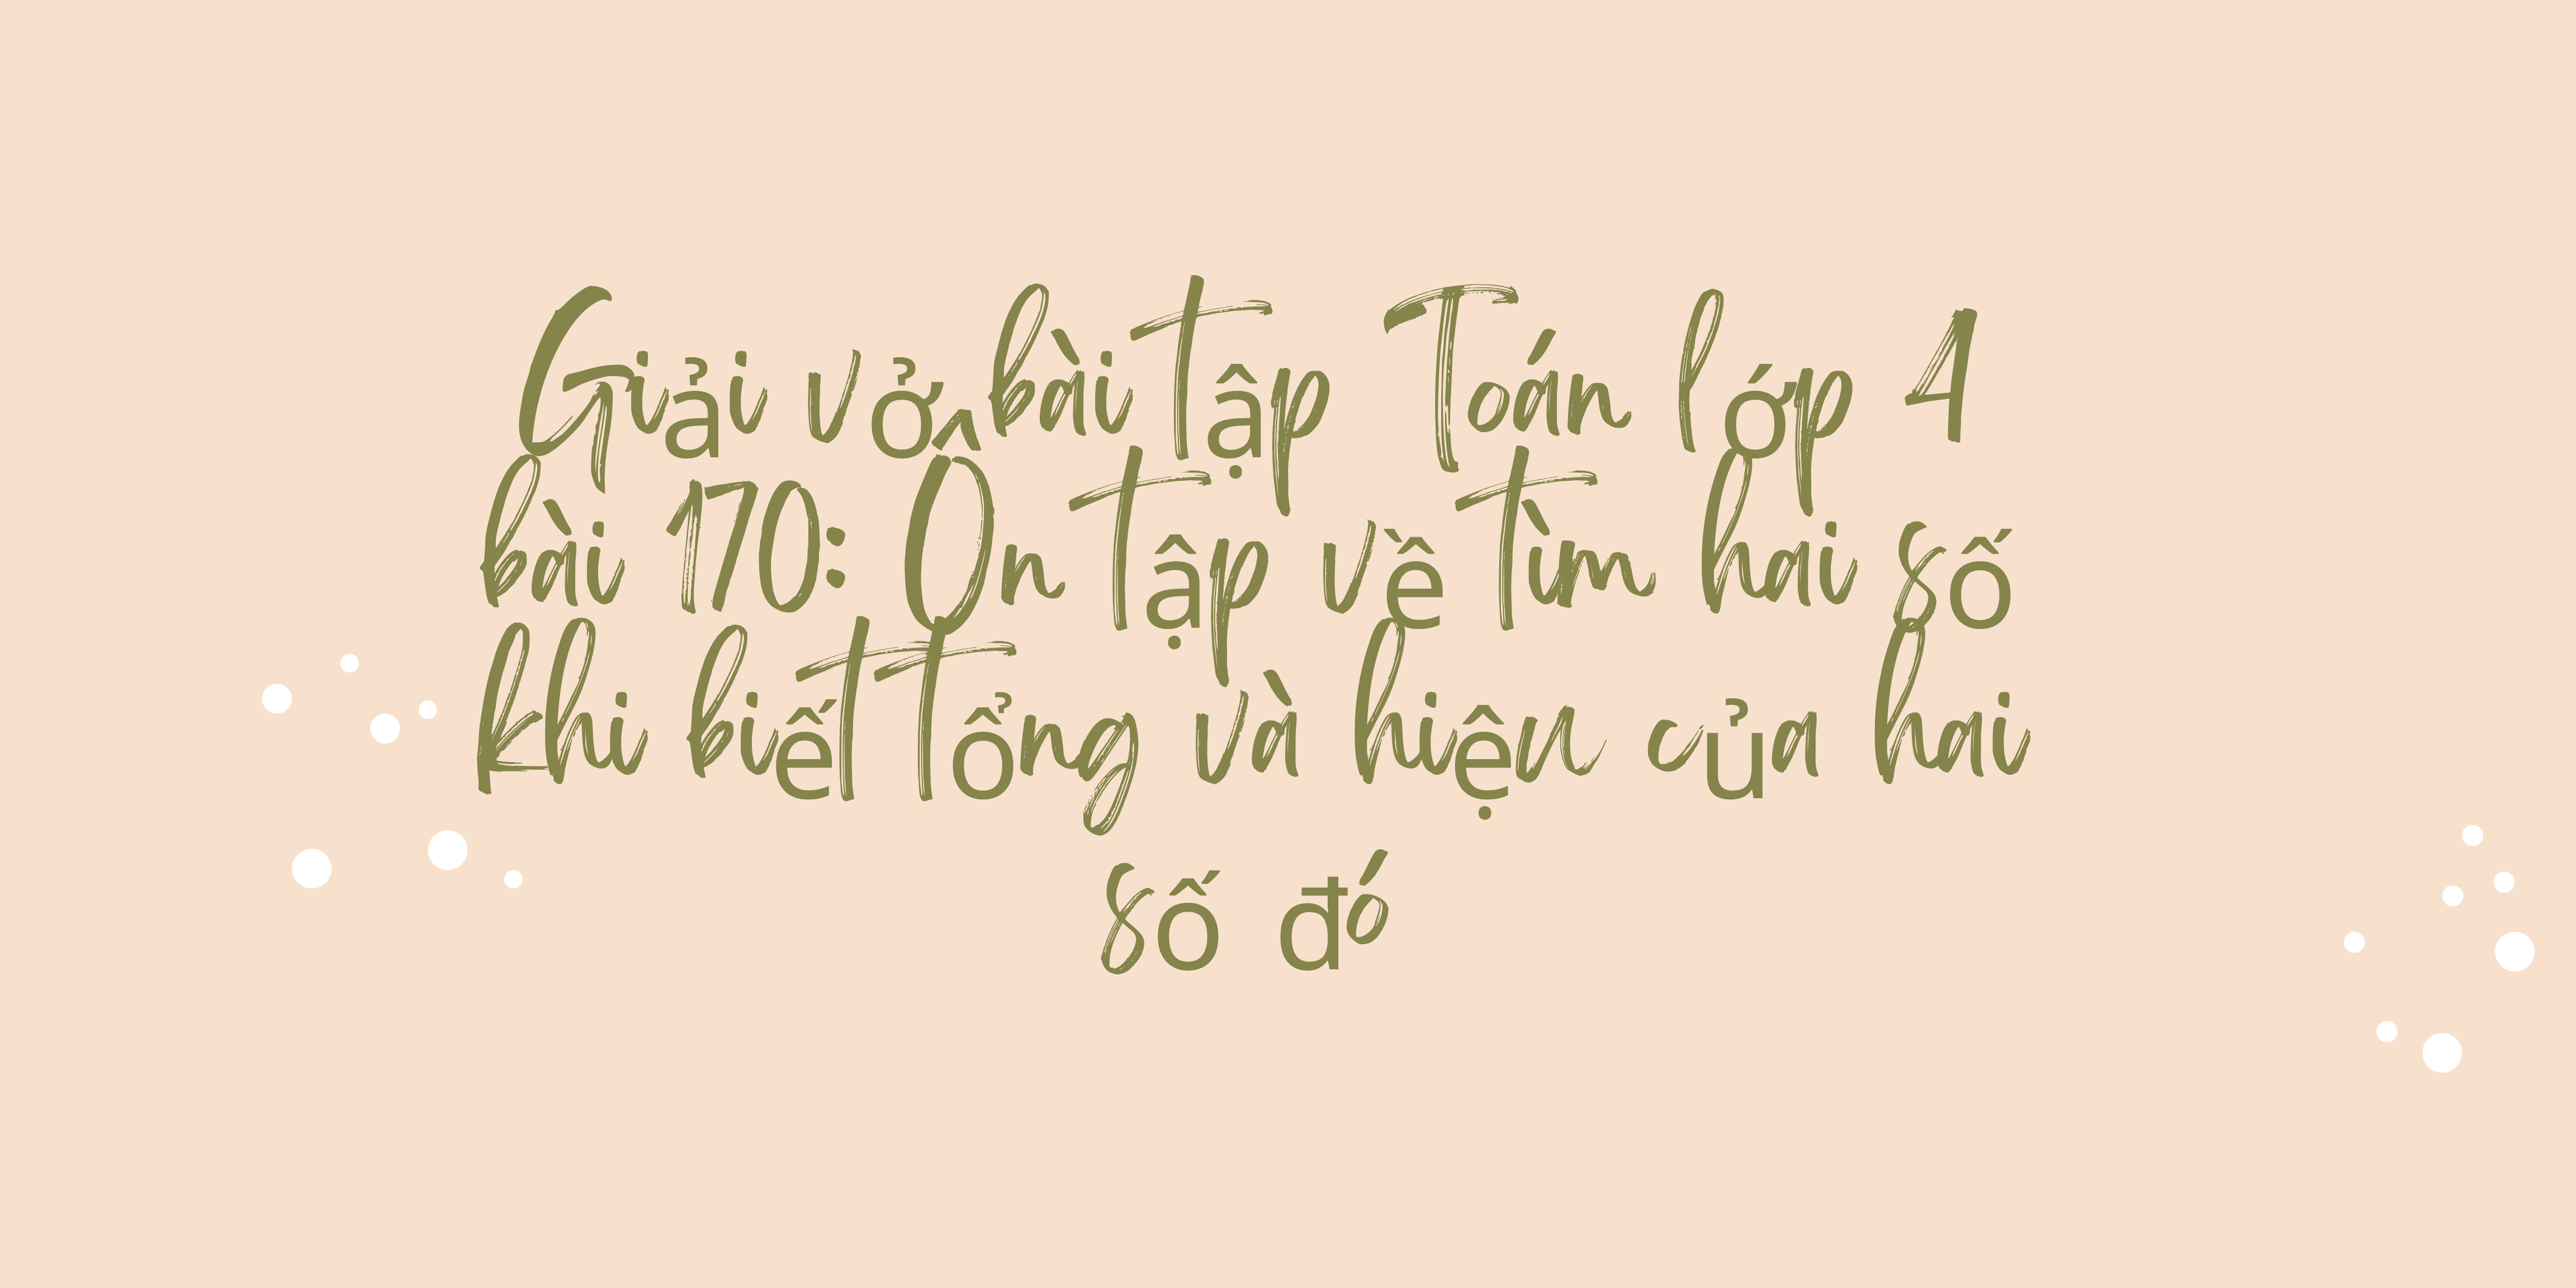 Giải vở bài tập Toán lớp 4
bài 170: Ôn tập về tìm hai số
khi biết tổng và hiệu của hai
số đó